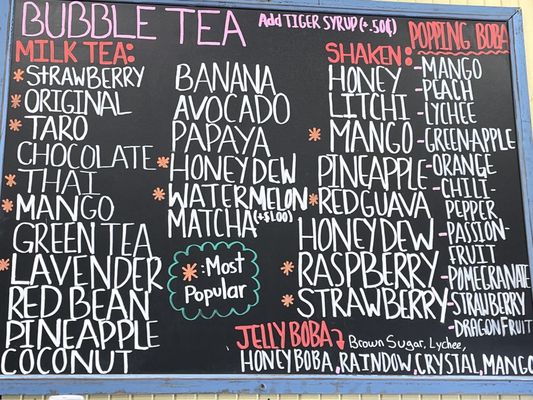 BUBBLE TEA
Add TIGER SYRUP (+.50¢)
MILK TEA:
*STRAWBERRY
*ORIGINAL
*TARO
CHOCOLATE
*THAI
*MANGO
GREEN TEA
*LAVENDER
RED BEAN
PINEAPPLE
COCONUT
BANANA
AVOCADO
PAPAYA
*HONEYDEW
*WATERMELON
MATCHA (+$1.00)
*: Most
Popular
SHAKEN:
HONEY
LITCHI
*MANGO
PINEAPPLE
*RED GUAVA
HONEYDEW
*RASPBERRY
*STRAWBERRY
POPPING BOBA
-MANGO
-PEACH
-LYCHEE
-GREEN-APPLE
-ORANGE
-CHILI-
PEPPER
-PASSION-
FRUIT
-POMEGRANATE
-STRAWBERRY
-DRAGONFRUIT
JELLY BOBA Brown Sugar, Lychee,
HONEY BOBA, RAINBOW, CRYSTAL, MANGO